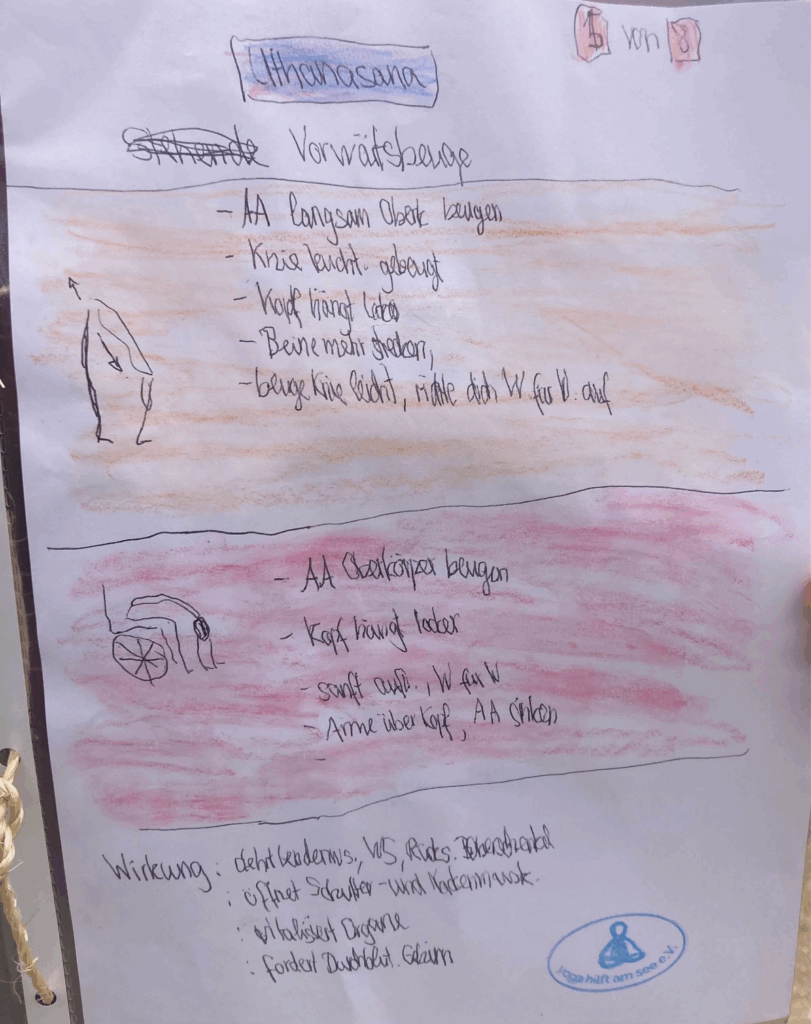 Uthanasana
von 8
Stehende Vorwätsbeuge
- AA langsam Oberk beugen
- Knie leicht. gebeugt
- Kopf hängt locker
- Beine mehr strecken,
- beuge Knie leicht, richte dich W für W. auf
- AA Oberkörper beugen
- Kopf hängt locker
- sanft aufr., W für W
- Arme über Kopf, AA sinken
-
Wirkung: dehnt Lendenws., WS, Rücks.
: öffnet Schulter- und
: vitalisiert Organe
: fördert Durchblut. Gehirn
yoga hilft am see e.V.